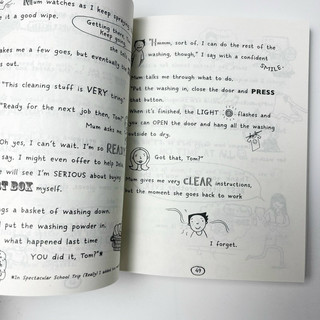 Mum watches as I keep spraying
e it a good wipe.
Getting there
Keep going
she
akes me a few goes, but eventually the
s out.
"This cleaning stuff is VERY tiring
"Ready for the next job then, Tom?"
Mum asks me
Oh yes, I can't wait. I'm so READY
say, I might even offer to help
will see I'm SERIOUS about buying
BOX myself.
ngs a basket of washing down.
I put the washing powder in,
what happened last time
YOU did it, Tom?"*
*In Spectacular School Trip (Really)
"Hmmm, sort of. I can do the rest of the
washing, though," I say with a confident
SMILE.
Mum talks me through what to do.
"Put the washing in, close the door and PRESS
that button.
When it's finished, the LIGHT flashes and
you can OPEN the door and hang all the washing
outside to dry.
Got that, Tom?"
Mum gives me very CLEAR instructions,
but the moment she goes back to work
I forget.
49